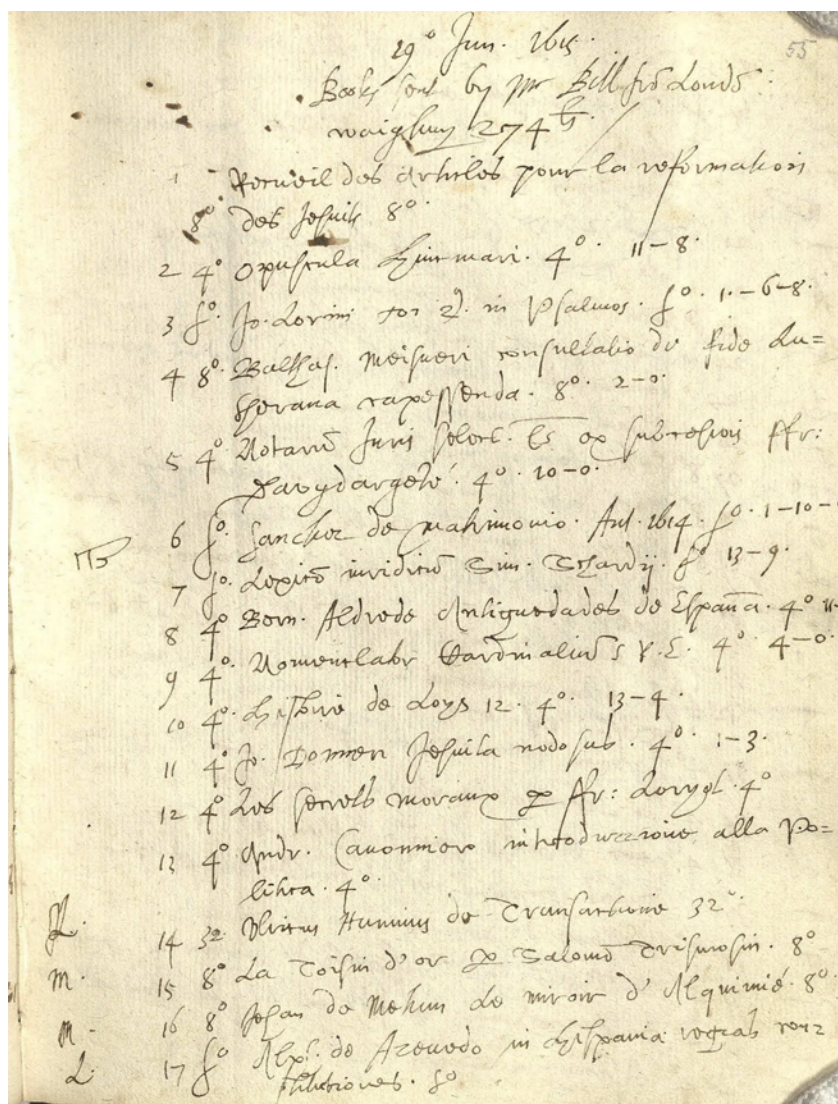 55
29° Jun. 1615.
Books sent by Mr Bill frō Londō:
waighing 274 lb.
1 Recueil des Articles pour la reformation
8° des Jesuits 8°.
2 4° Opuscula Hincmari. 4°. 11-8.
3 f°. Jo. Lorini to: 2. in Psalmos. f°. 1-6-8.
4 8° Balthas. Meisneri consultatio de fide Lu=
therana capessenda. 8°. 2-0.
5 4° Notariū Juris select. ex successiōis ffr:
4°. 10-0.
6 f°. Sanchez de matrimonio. Ant. 1614. f°. 1-10-
7 f°. Lexicō iuridicū Sim. Schardij. f° 13-9.
8 4° Bern. Aldrede Antiguedades de España. 4° 11-
9 4°. Nomenclator Cardinaliū S.R.E. 4° 4-0.
10 4°. Histoire de Loys 12. 4°. 13-4.
11 4° Jo. Jesuita nodosus. 4°. 1-3.
12 4° Les secrets moraux ffr: Loryot. 4°
13 4° Andr. Canonniero introduzzione alla Po=
litica. 4°.
L. 14 32° Ulricus Hunnius de Transactione 32°.
M. 15 8° La Toison d'or Salomō Trismosin. 8°
M. 16 8° Jehan de Mehun Le miroir d'Alquimie. 8°.
L. 17 f° Alph. de Azevedo in Hispaniae regias cons
titutiones. f°